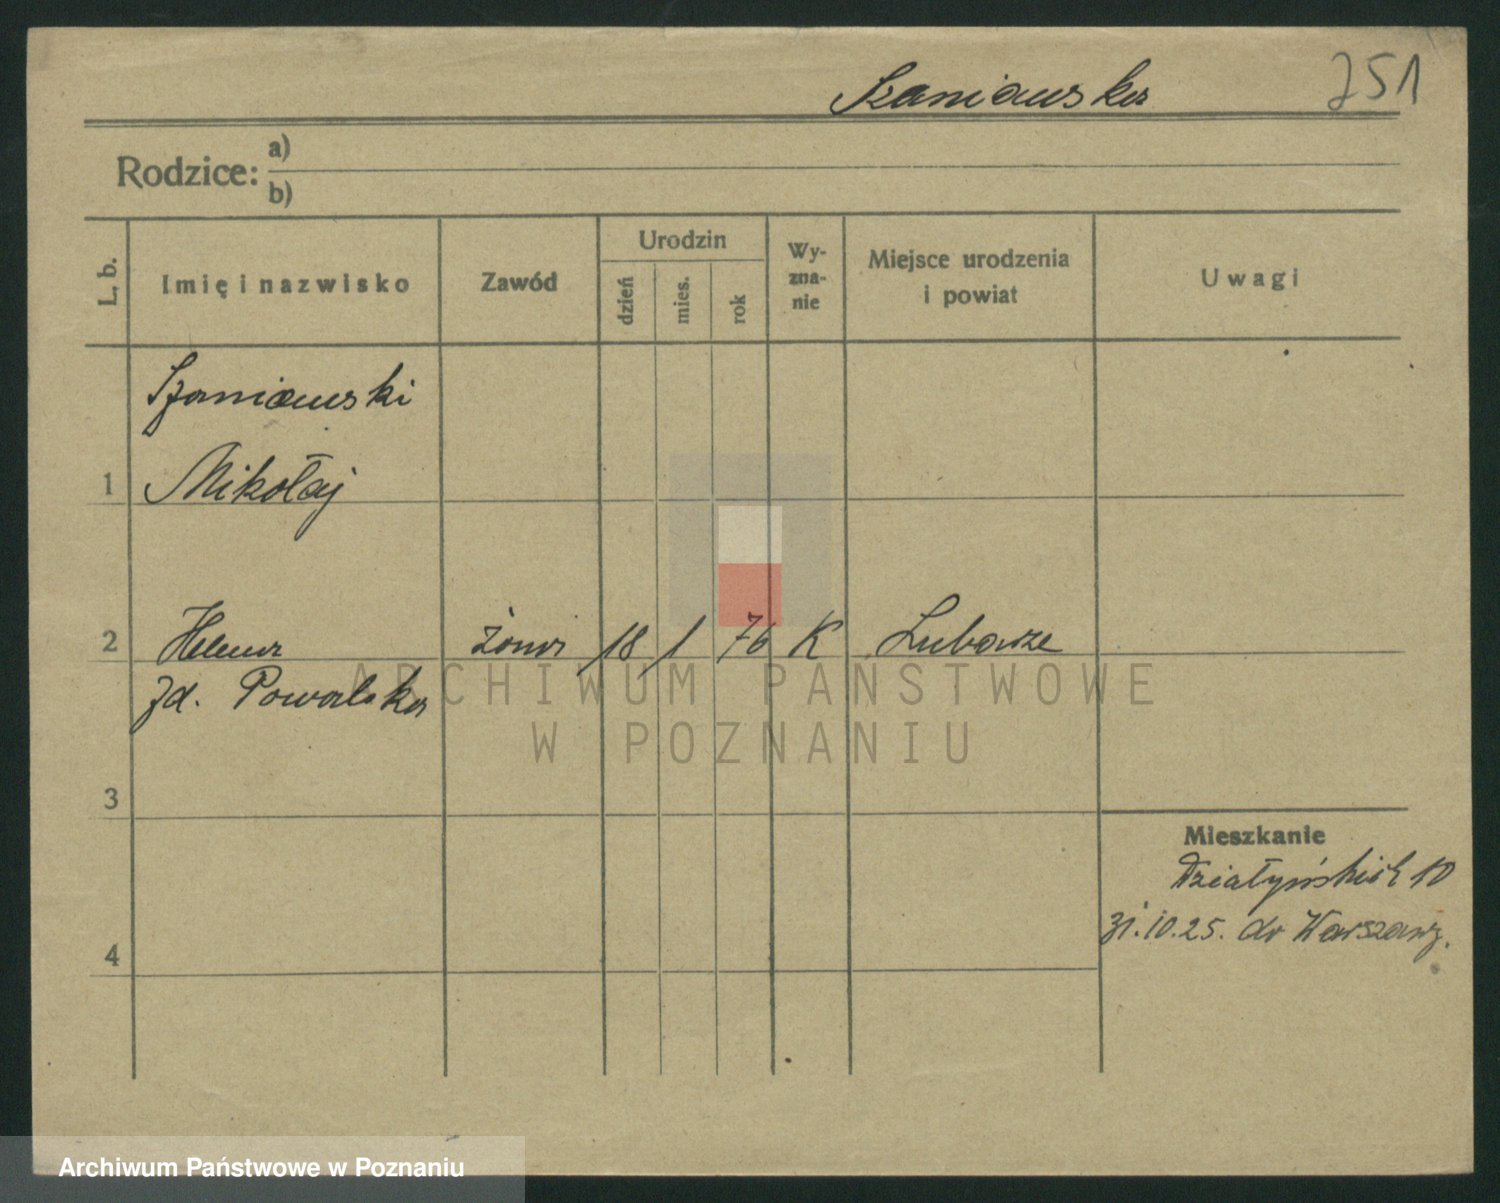 Szaniawska 751
Rodzice: a)
b)
L. b. Imię i nazwisko Zawód Urodzin dzień mies. rok Wy-zna-nie Miejsce urodzenia i powiat Uwagi
Szaniawski
1 Mikołaj
2 Helena żona 18 1 76 K Lubasze
zd. Powalska
ARCHIWUM PAŃSTWOWE
W POZNANIU
3
Mieszkanie
Działyńskich 10
31.10.25. do Warszawy.
4
Archiwum Państwowe w Poznaniu